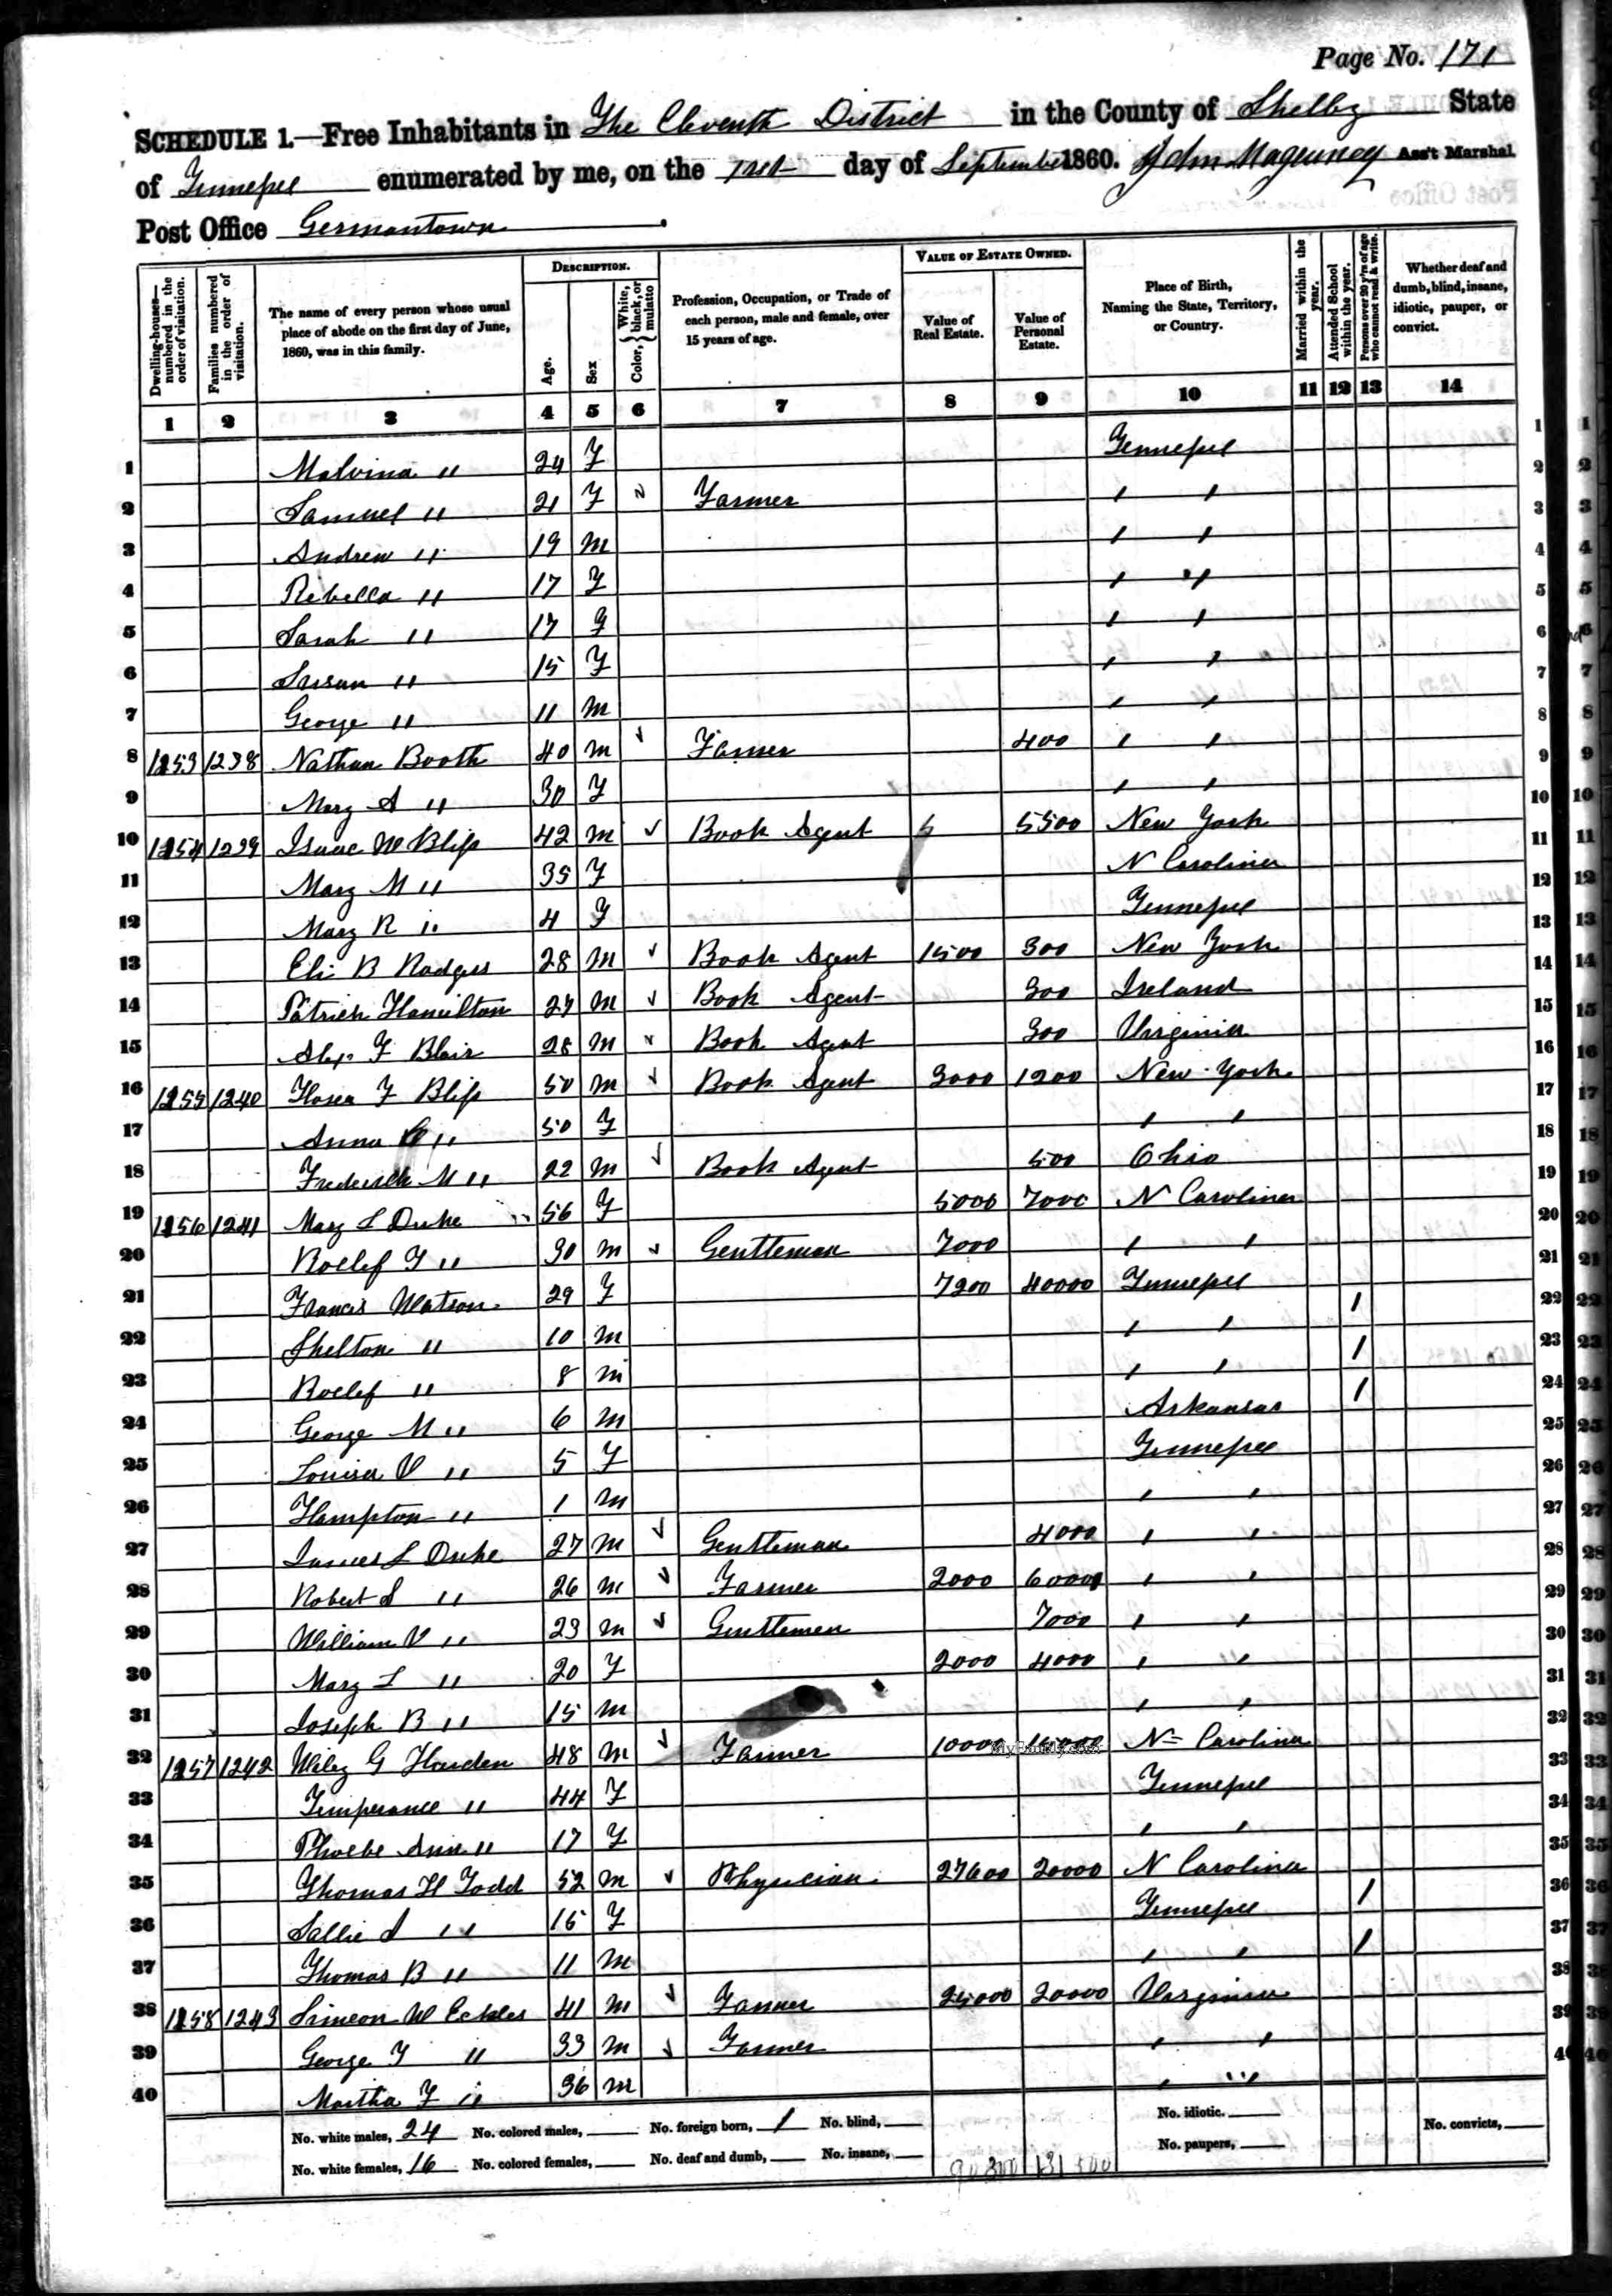 Page No. 171
SCHEDULE 1.—Free Inhabitants in The Eleventh District in the County of Shelby State
of Tennessee enumerated by me, on the 1st day of September 1860. Ass't Marshal
Post Office Germantown.
Dwelling-houses—numbered in the order of visitation.
Families numbered in the order of visitation.
The name of every person whose usual place of abode on the first day of June, 1860, was in this family.
DESCRIPTION.
Age.
Sex
Color, { White, black, or mulatto
Profession, Occupation, or Trade of each person, male and female, over 15 years of age.
VALUE OF ESTATE OWNED.
Value of Real Estate.
Value of Personal Estate.
Place of Birth, Naming the State, Territory, or Country.
Married within the year.
Attended School within the year.
Persons over 20 y'rs of age who cannot read & write.
Whether deaf and dumb, blind, insane, idiotic, pauper, or convict.
1 2 3 4 5 6 7 8 9 10 11 12 13 14
1 Malvina " 24 F Tennessee 1
2 Samuel " 21 F Farmer " " 2
3 Andrew " 19 m " " 3
4 Rebella " 17 F " " 4
5 Sarah " 17 F " " 5
6 Susan " 15 F " " 6
7 George " 11 m " " 7
8 1253 1238 Nathan Booth 40 m Farmer 400 " " 8
9 Mary A " 30 F " " 9
10 1254 1239 Isaac W Bliss 42 m Book Agent 5500 New York 10
11 Mary M " 35 F N Carolina 11
12 Mary R " 4 F Tennessee 12
13 Eli B Rodgers 28 m Book Agent 1500 300 New York 13
14 Patrick Hamilton 27 m Book Agent 300 Ireland 14
15 Alex F Blair 28 m Book Agent 300 Virginia 15
16 1255 1240 Hosea F Bliss 50 m Book Agent 3000 1200 New York 16
17 Anna " 50 F " " 17
18 Frederick M " 22 m Book Agent 500 Ohio 18
19 1256 1241 Mary L Duke 56 F 5000 7000 N Carolina 19
20 Roelef G " 30 m Gentleman 7000 " " 20
21 Francis Watson 29 F 7200 40000 Tennessee 21
22 Shelton " 10 m " " 1 22
23 Roelef " 8 m " " 1 23
24 George M " 6 m Arkansas 1 24
25 Louisa V " 5 F Tennessee 25
26 Hampton " 1 m " " 26
27 James L Duke 27 m Gentleman 4000 " " 27
28 Robert S " 26 m Farmer 2000 6000 " " 28
29 William V " 23 m Gentleman 7000 " " 29
30 Mary L " 20 F 2000 4000 " " 30
31 Joseph B " 15 m " " 31
32 1257 1242 Wiley G 48 m Farmer 10000 N Carolina 32
MyFamily.com
33 Temperance " 44 F Tennessee 33
34 Phoebe Ann " 17 F " " 34
35 Thomas H Todd 52 m Physician 27600 20000 N Carolina 35
36 Sallie " 15 F Tennessee 1 36
37 Thomas B " 11 m " " 1 37
38 1258 1243 Simeon W Eckles 41 m Farmer 25000 20000 Virginia 38
39 George T " 33 m Farmer " " 39
40 Martha F " 36 m " " 40
No. white males, 24 No. colored males, No. foreign born, 1 No. blind, No. idiotic. No. convicts,
No. white females, 16 No. colored females, No. deaf and dumb, No. insane, No. paupers,